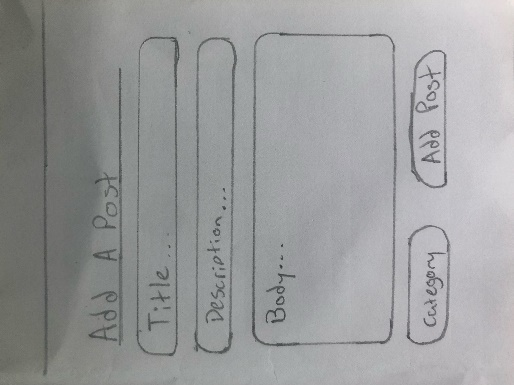 Add A Post
Title...
Description...
Body...
Category
Add Post